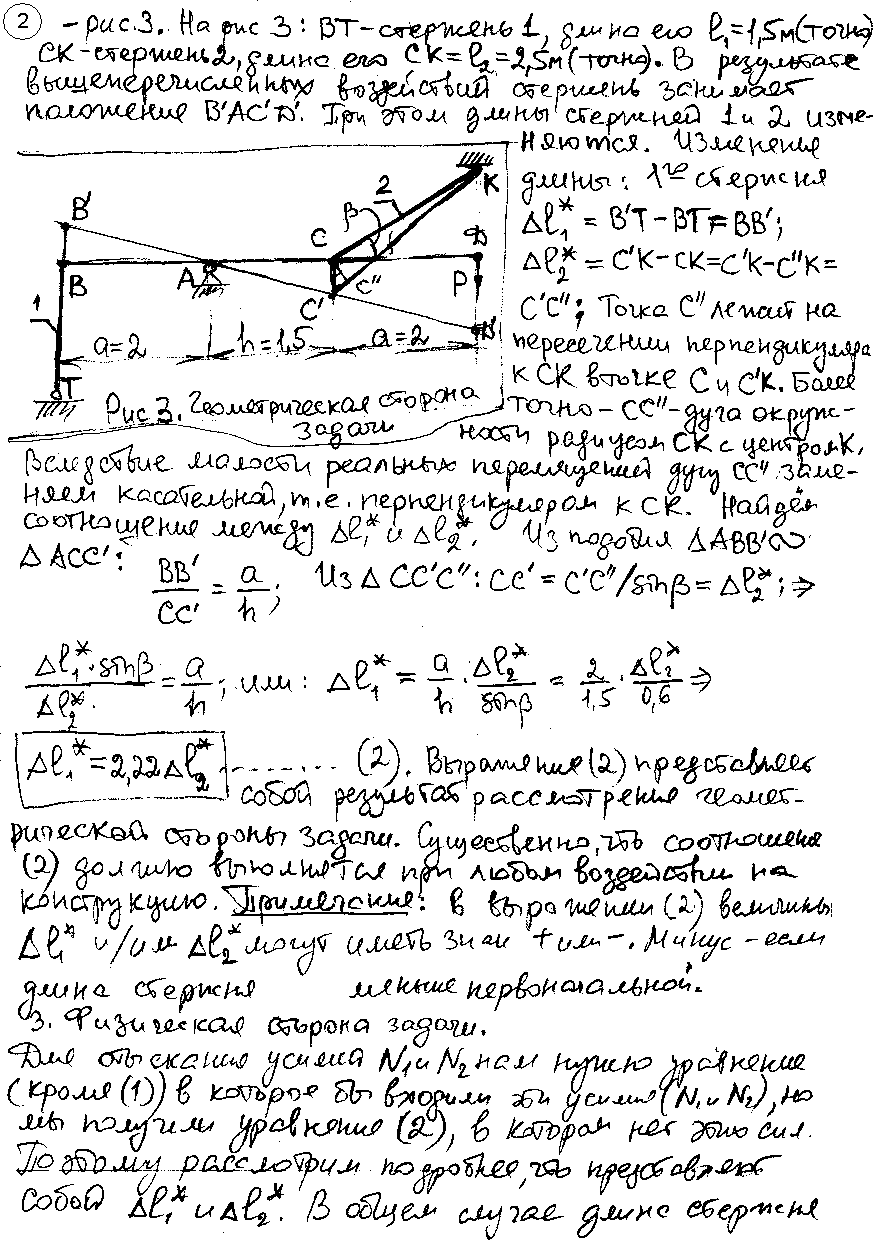 2
– рис.3. На рис 3: ВТ-стержень 1, длина его l₁=1,5м(точно)
СК-стержень2, длина его СК=l₂=2,5м(точно). В результате
вышеперечисленных воздействий стержень занимает
положение В'АС'D'. При этом длины стержней 1 и 2 изме-
няются. Изменение
длины: 1го стержня
Δl₁* = B'T – BT = BB';
Δl₂* = C'K – CK = C'K – C''K =
C'C''; Точка C'' лежит на
пересечении перпендикуляра
к СК в точке С и С'К. Более
точно – СС'' – дуга окруж-
ности радиусом СК с центром К.
B'
B
A
C
C'
C''
β
2
K
D
P
D'
1
T
a=2
h=1,5
a=2
Рис 3. Геометрическая сторона
задачи
Вследствие малости реальных перемещений дугу СС'' заме-
няем касательной, т.е. перпендикуляром к СК. Найдём
соотношение между Δl₁* и Δl₂*. Из подобия ΔABB'∾
ΔACC':
BB'/CC' = a/h; Из Δ CC'C'': CC' = C'C''/sinβ = Δl₂*; ⇒
Δl₁*·sinβ/Δl₂* = a/h; или: Δl₁* = a/h · Δl₂*/sinβ = 2/1,5 · Δl₂*/0,6 ⇒
Δl₁* = 2,22Δl₂* ......... (2). Выражение (2) представляет
собой результат рассмотрения геомет-
рической стороны задачи. Существенно, что соотношение
(2) должно выполнятся при любом воздействии на
конструкцию. Примечание: в выражении (2) величины
Δl₁* и/или Δl₂* могут иметь знак + или –. Минус – если
длина стержня меньше первоначальной.
3. Физическая сторона задачи.
Для отыскания усилий N₁ и N₂ нам нужно уравнение
(кроме (1)) в которое бы входили эти усилия (N₁ и N₂), но
мы получили уравнение (2), в котором нет этих сил.
Поэтому рассмотрим подробнее, что представляют
собой Δl₁* и Δl₂*. В общем случае длина стержня